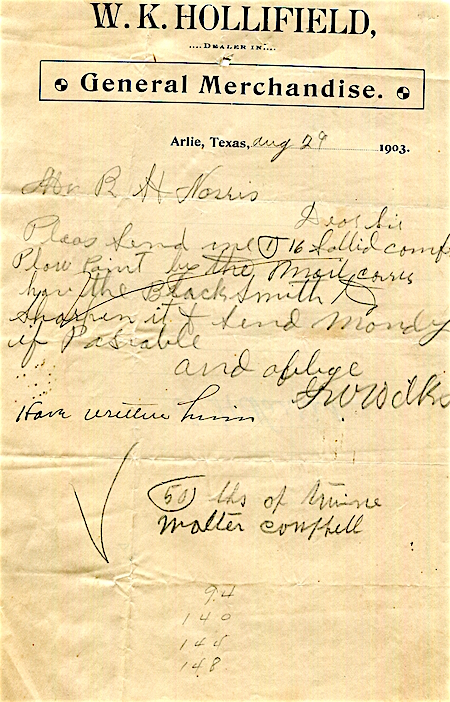 W. K. HOLLIFIELD,
....DEALER IN....
General Merchandise.
Arlie, Texas, aug 29 1903.
Mr R H Norris
Dear Sir
Pleas Send me 1 16 Sollid comp
Plow Point by the Mail
hav the Black Smith
Sharpen it & Send Mondy
if Pasiable
and oblige
Have written him
50 lbs of twine
Walter
94
140
144
148